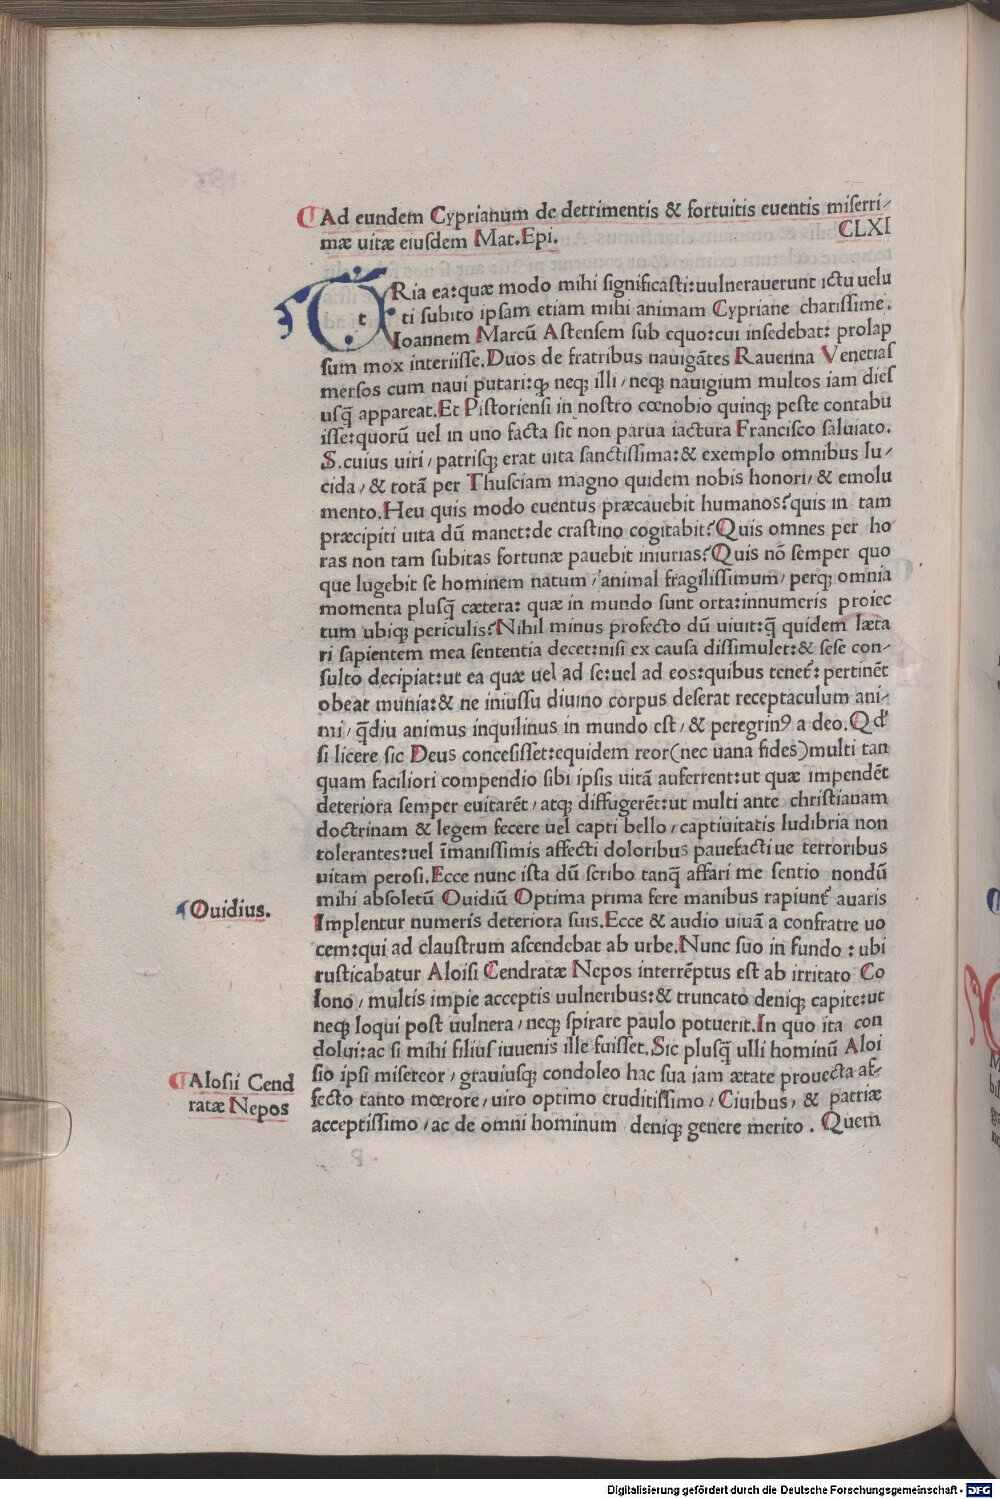 Ad eundem Cyprianum de detrimentis & fortuitis euentis miserri-
mæ uitæ eiusdem Mat.Epi. CLXI
t
TRia ea:quæ modo mihi significasti:uulnerauerunt ictu uelu
ti subito ipsam etiam mihi animam Cypriane charissime.
Ioannem Marcū Astensem sub equo:cui insedebat: prolap
sum mox interiisse.Duos de fratribus nauigātes Rauenna Venetias
mersos cum naui putari:ꝙ neqꝫ illi/neqꝫ nauigium multos iam dies
usq̄ appareat.Et Pistoriensi in nostro cœnobio quinqꝫ peste contabu
isse:quorū uel in uno facta sit non parua iactura Francisco saluiato.
S.cuius uiri/patrisqꝫ erat uita sanctissima:& exemplo omnibus lu-
cida/& totā per Thusciam magno quidem nobis honori/& emolu
mento.Heu quis modo euentus præcauebit humanos?quis in tam
præcipiti uita dū manet:de crastino cogitabit?Quis omnes per ho
ras non tam subitas fortunæ pauebit iniurias?Quis nō semper quo
que lugebit se hominem natum/animal fragilissimum/perqꝫ omnia
momenta plusq̄ cætera: quæ in mundo sunt orta:innumeris proiec
tum ubiqꝫ periculis?Nihil minus profecto dū uiuit:q̄ quidem læta
ri sapientem mea sententia decet:nisi ex causa dissimulet:& sese con-
sulto decipiat:ut ea quæ uel ad se:uel ad eos:quibus tenet᷑: pertinēt
obeat munia:& ne iniussu diuino corpus deserat receptaculum ani-
mi/q̄diu animus inquilinus in mundo est/& peregrinꝰ a deo.Qd᷑
si licere sic Deus concesisset:equidem reor(nec uana fides)multi tan
quam faciliori compendio sibi ipsis uitā auferrent:ut quæ impendēt
deteriora semper euitarēt/atqꝫ diffugerēt:ut multi ante christianam
doctrinam & legem fecere uel capti bello/captiuitatis ludibria non
tolerantes:uel īmanissimis affecti doloribus pauefactiue terroribus
uitam perosi.Ecce nunc ista dū scribo tanq̄ affari me sentio nondū
mihi absoletū Ouidiū Optima prima fere manibus rapiunt᷑ auaris
Implentur numeris deteriora suis.Ecce & audio uiuā a confratre uo
cem:qui ad claustrum ascendebat ab urbe.Nunc suo in fundo : ubi
rusticabatur Aloisi Cendratæ Nepos interrēptus est ab irritato Co
lono/multis impie acceptis uulneribus:& truncato deniqꝫ capite:ut
neqꝫ loqui post uulnera/neqꝫ spirare paulo potuerit.In quo ita con
dolui:ac si mihi filius iuuenis ille fuisset.Sic plusq̄ ulli hominū Aloi
sio ipsi misereor/grauiusqꝫ condoleo hac sua iam ætate prouecta af-
fecto tanto mœrore/uiro optimo eruditissimo/Ciuibus/& patriæ
acceptissimo/ac de omni hominum deniqꝫ genere merito . Quem
Ouidius.
Alosii Cend
ratæ Nepos
Digitalisierung gefördert durch die Deutsche Forschungsgemeinschaft - DFG